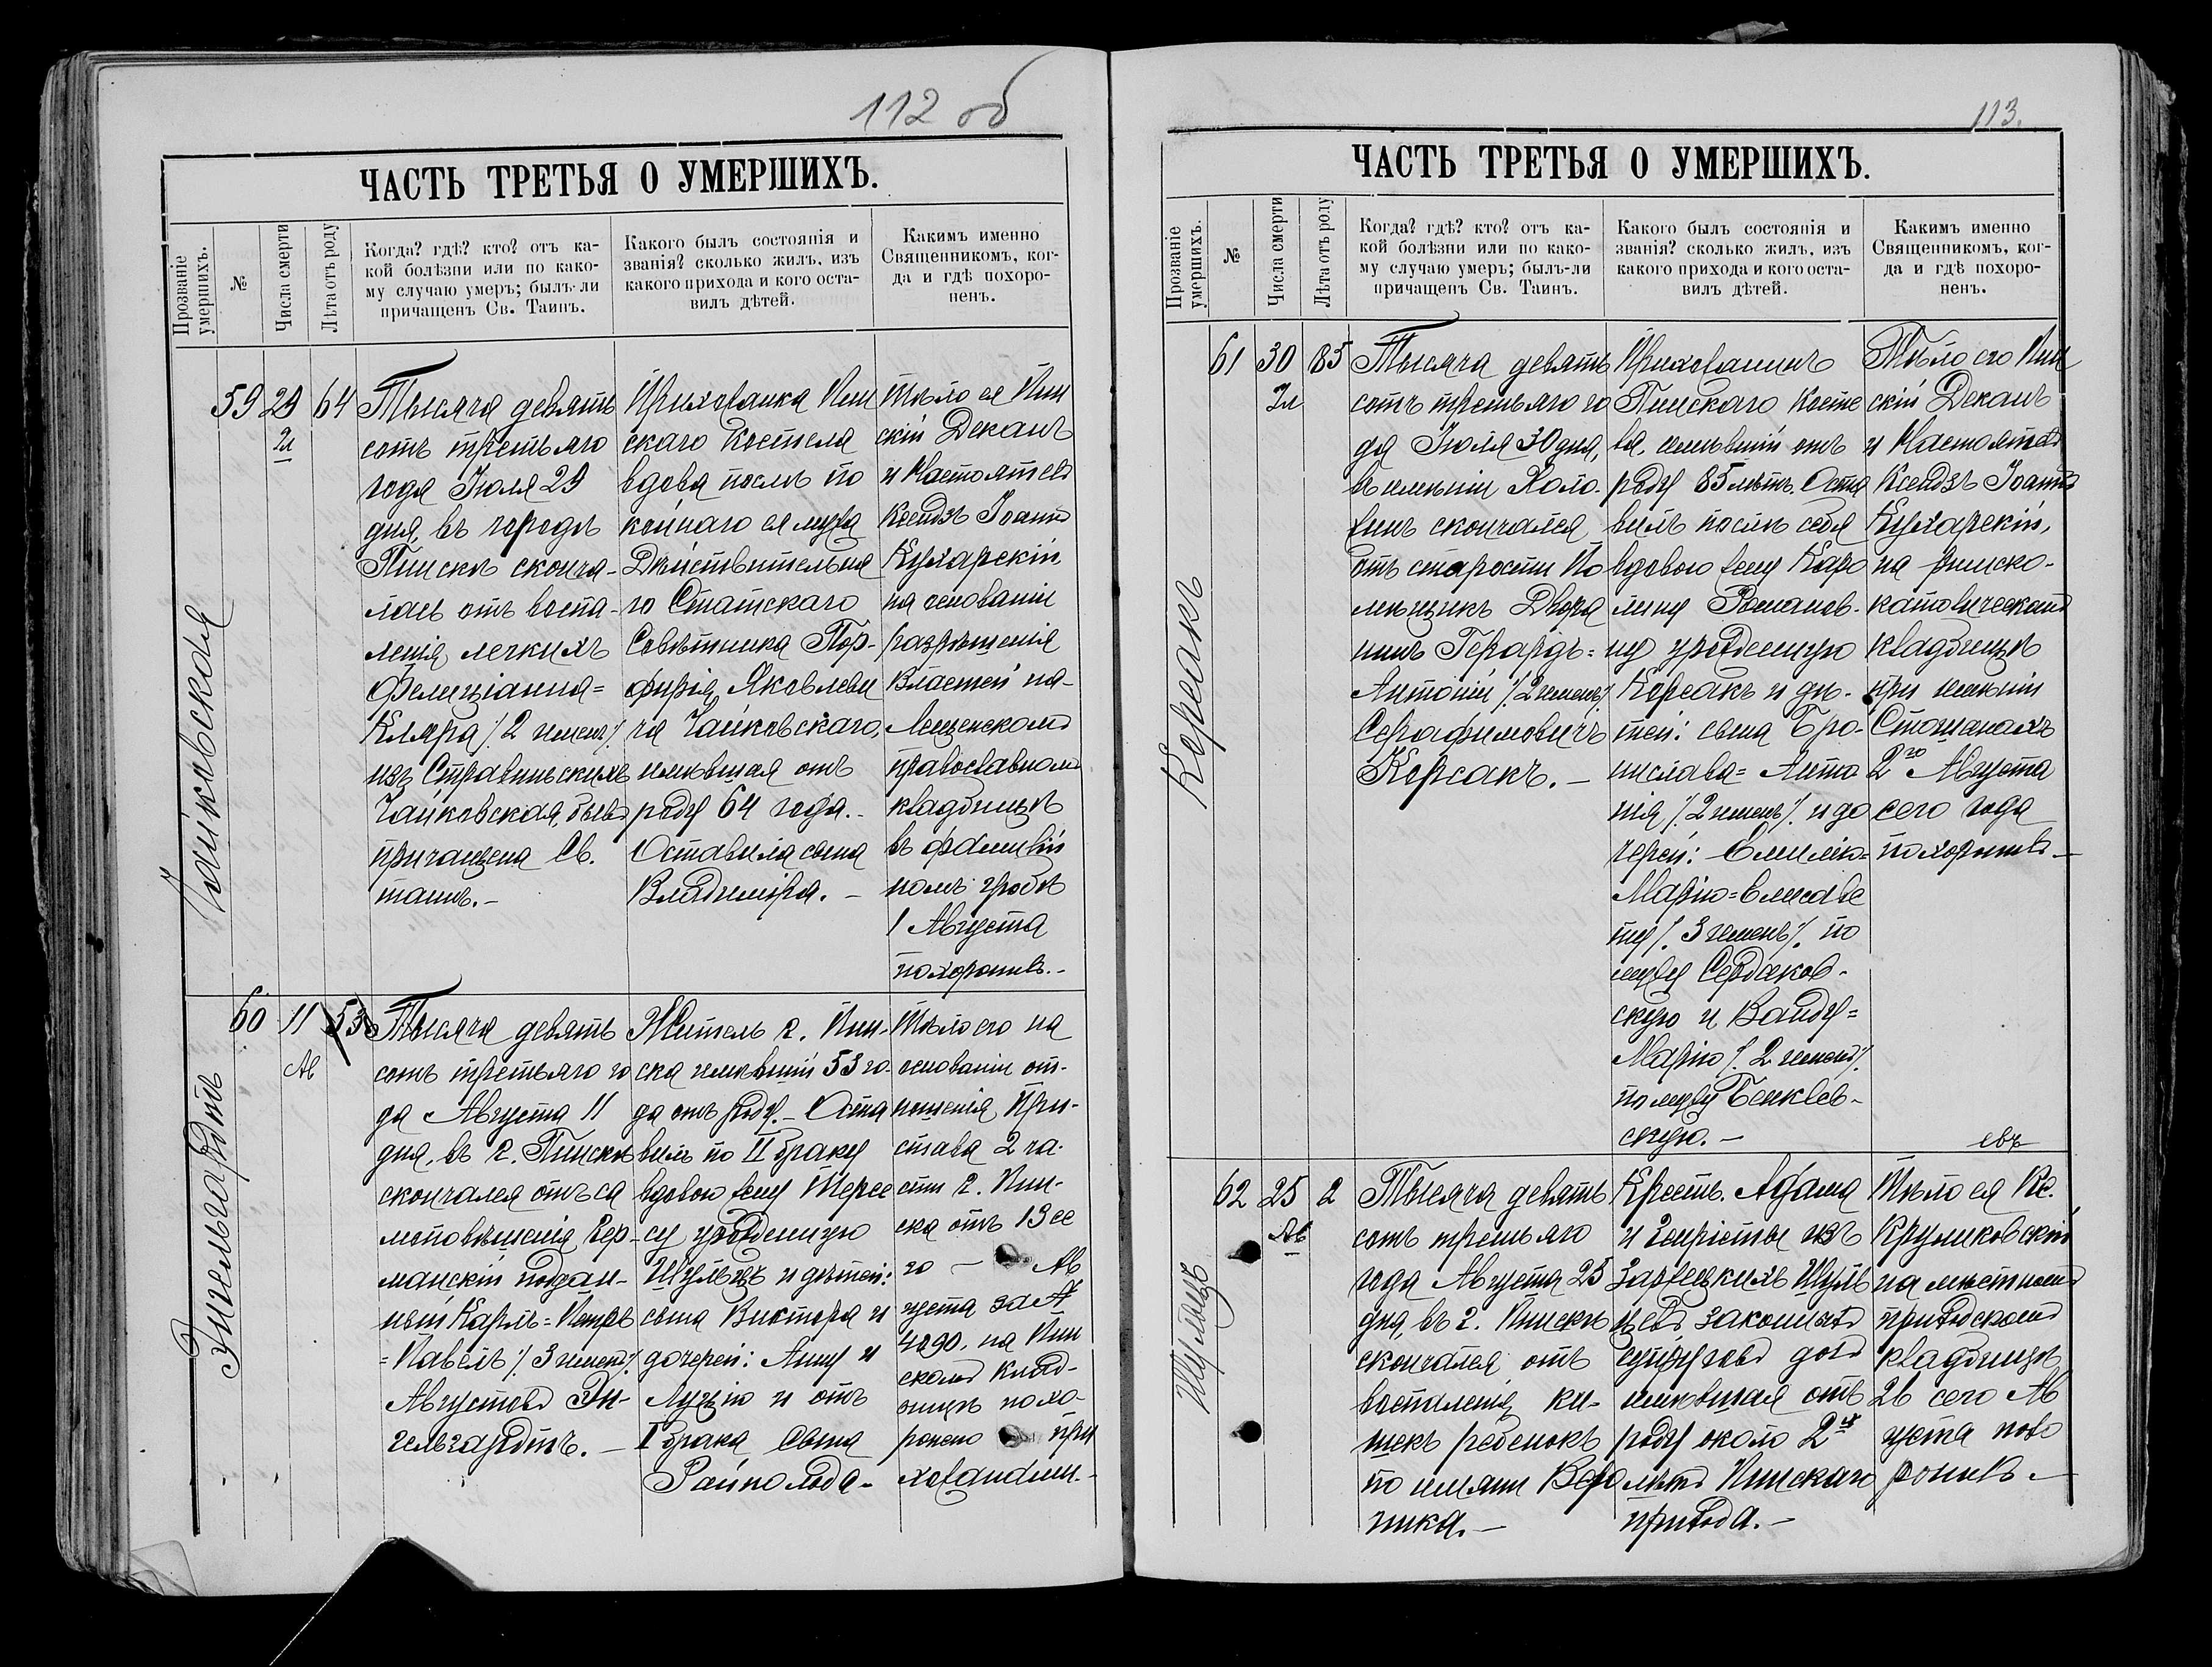 112 об
ЧАСТЬ ТРЕТЬЯ О УМЕРШИХЪ.
Прозваніе умершихъ.
№
Числа смерти
Лѣта отъ роду
Когда? гдѣ? кто? отъ ка-
кой болѣзни или по како-
му случаю умеръ; былъ-ли
причащенъ Св. Таинъ.
Какого былъ состоянія и
званія? сколько жилъ, изъ
какого прихода и кого оста-
вилъ дѣтей.
Какимъ именно
Священникомъ, ког-
да и гдѣ похоро-
ненъ.
Чайковская
59
29
Іл
64
Тысяча девять
сотъ третьяго
года Іюля 29
дня, въ городѣ
Пинскѣ сконча-
лась отъ воспа-
ленія легкихъ
Фелиціанна=
Клара /. 2 именъ /.
изъ Стравинскихъ
Чайковская, бывъ
причащена Св.
таинъ. –
Прихожанка Пин
скаго Костела
вдова послѣ по
койнаго ея мужа
Дѣйствительна
го Статскаго
Совѣтника Пор-
фирія Яковлеви
ча Чайковскаго,
имѣвшая отъ
роду 64 года. -
Оставила сына
Владиміра. –
Тѣло ея Пин
скій Деканъ
и Настоятель
Ксендзъ Іоаннъ
Кухарскій
на основаніи
разрѣшенія
Властей на-
Лещенскомъ
православномъ
кладбищѣ
въ фамилій
номъ гробѣ
1 Августа
похоронилъ. -
Энгельгардтъ
60
11
Ав
53
Тысяча девять
сотъ третьяго го
да Августа 11
дня, въ г. Пинскѣ
скончался отъ са
моповѣшенія Гер-
манскій поддан-
ный Карлъ=Петръ
=Павелъ /. 3 именъ /.
Августовъ Эн-
гельгардтъ. –
Житель г. Пин-
ска имѣвшій 53 го-
да отъ роду. – Оста
вилъ по II браку
вдовою жену Тере
су урожденную
Шульцъ и дѣтей:
сына Виктора и
дочерей: Анну и
Луцію и отъ
I брака сына
Райнольда –
Тѣло его на
основаніи от-
ношенія При-
става 2 ча-
сти г. Пин-
ска отъ 13 се
го – Ав
густа за №
4090, на Пин
скомъ клад-
бищѣ похо-
ронено при
хожанами. -
113.
ЧАСТЬ ТРЕТЬЯ О УМЕРШИХЪ.
Прозваніе умершихъ.
№
Числа смерти
Лѣта отъ роду
Когда? гдѣ? кто? отъ ка-
кой болѣзни или по како-
му случаю умеръ; былъ-ли
причащенъ Св. Таинъ.
Какого былъ состоянія и
званія? сколько жилъ, изъ
какого прихода и кого оста-
вилъ дѣтей.
Какимъ именно
Священникомъ, ког-
да и гдѣ похоро-
ненъ.
Корсакъ
61
30
Іл
85
Тысяча девять
сотъ третьяго го
да Іюля 30 дня,
въ имѣніи Холо-
жинъ скончался
отъ старости По
мѣщикъ Дворя
нинъ Герардъ=
Антоній /. 2 именъ /.
Серафимовичъ
Корсакъ. –
Прихожанинъ
Пинскаго Косте
ла, имѣвшій отъ
роду 85 лѣтъ. Оста
вилъ послѣ себя
вдовою жену Каро
лину Романов-
ну урожденную
Корсакъ и дѣ-
тей: сына Бро-
нислава= Анто
нія /. 2 именъ /. и до
черей: Емилію=
Марію=Елисаве
ту /. 3 именъ /. по
мужу Сердаков-
скую и Ванду=
Марію /. 2 именъ /.
по мужу Бенклев-
скую. –
Тѣло его Пин
скій Деканъ
и Настоятель
Ксендзъ Іоаннъ
Кухарскій,
на римско-
католическомъ
кладбищѣ
при имѣніи
Стошанахъ
2го Августа
сего года
похоронилъ –
Шульцъ
62
25
Ав
2
Тысяча девять
сотъ третьяго
года Августа 25
дня, въ г. Пинскѣ
скончался отъ
воспаленія ки-
шекъ ребенокъ
по имяни Веро
ника. –
Крест. Адама
и Генріеты изъ
Зарецкихъ Шуль
цевъ законныхъ
супруговъ дочь
имѣвшая отъ
роду около 2хъ
лѣтъ Пинскаго
прихода. –
евъ
Тѣло ея Кс.
Круликовскій
на мѣстномъ
приходскомъ
кладбищѣ
26 сего Ав
густа похо
ронилъ –